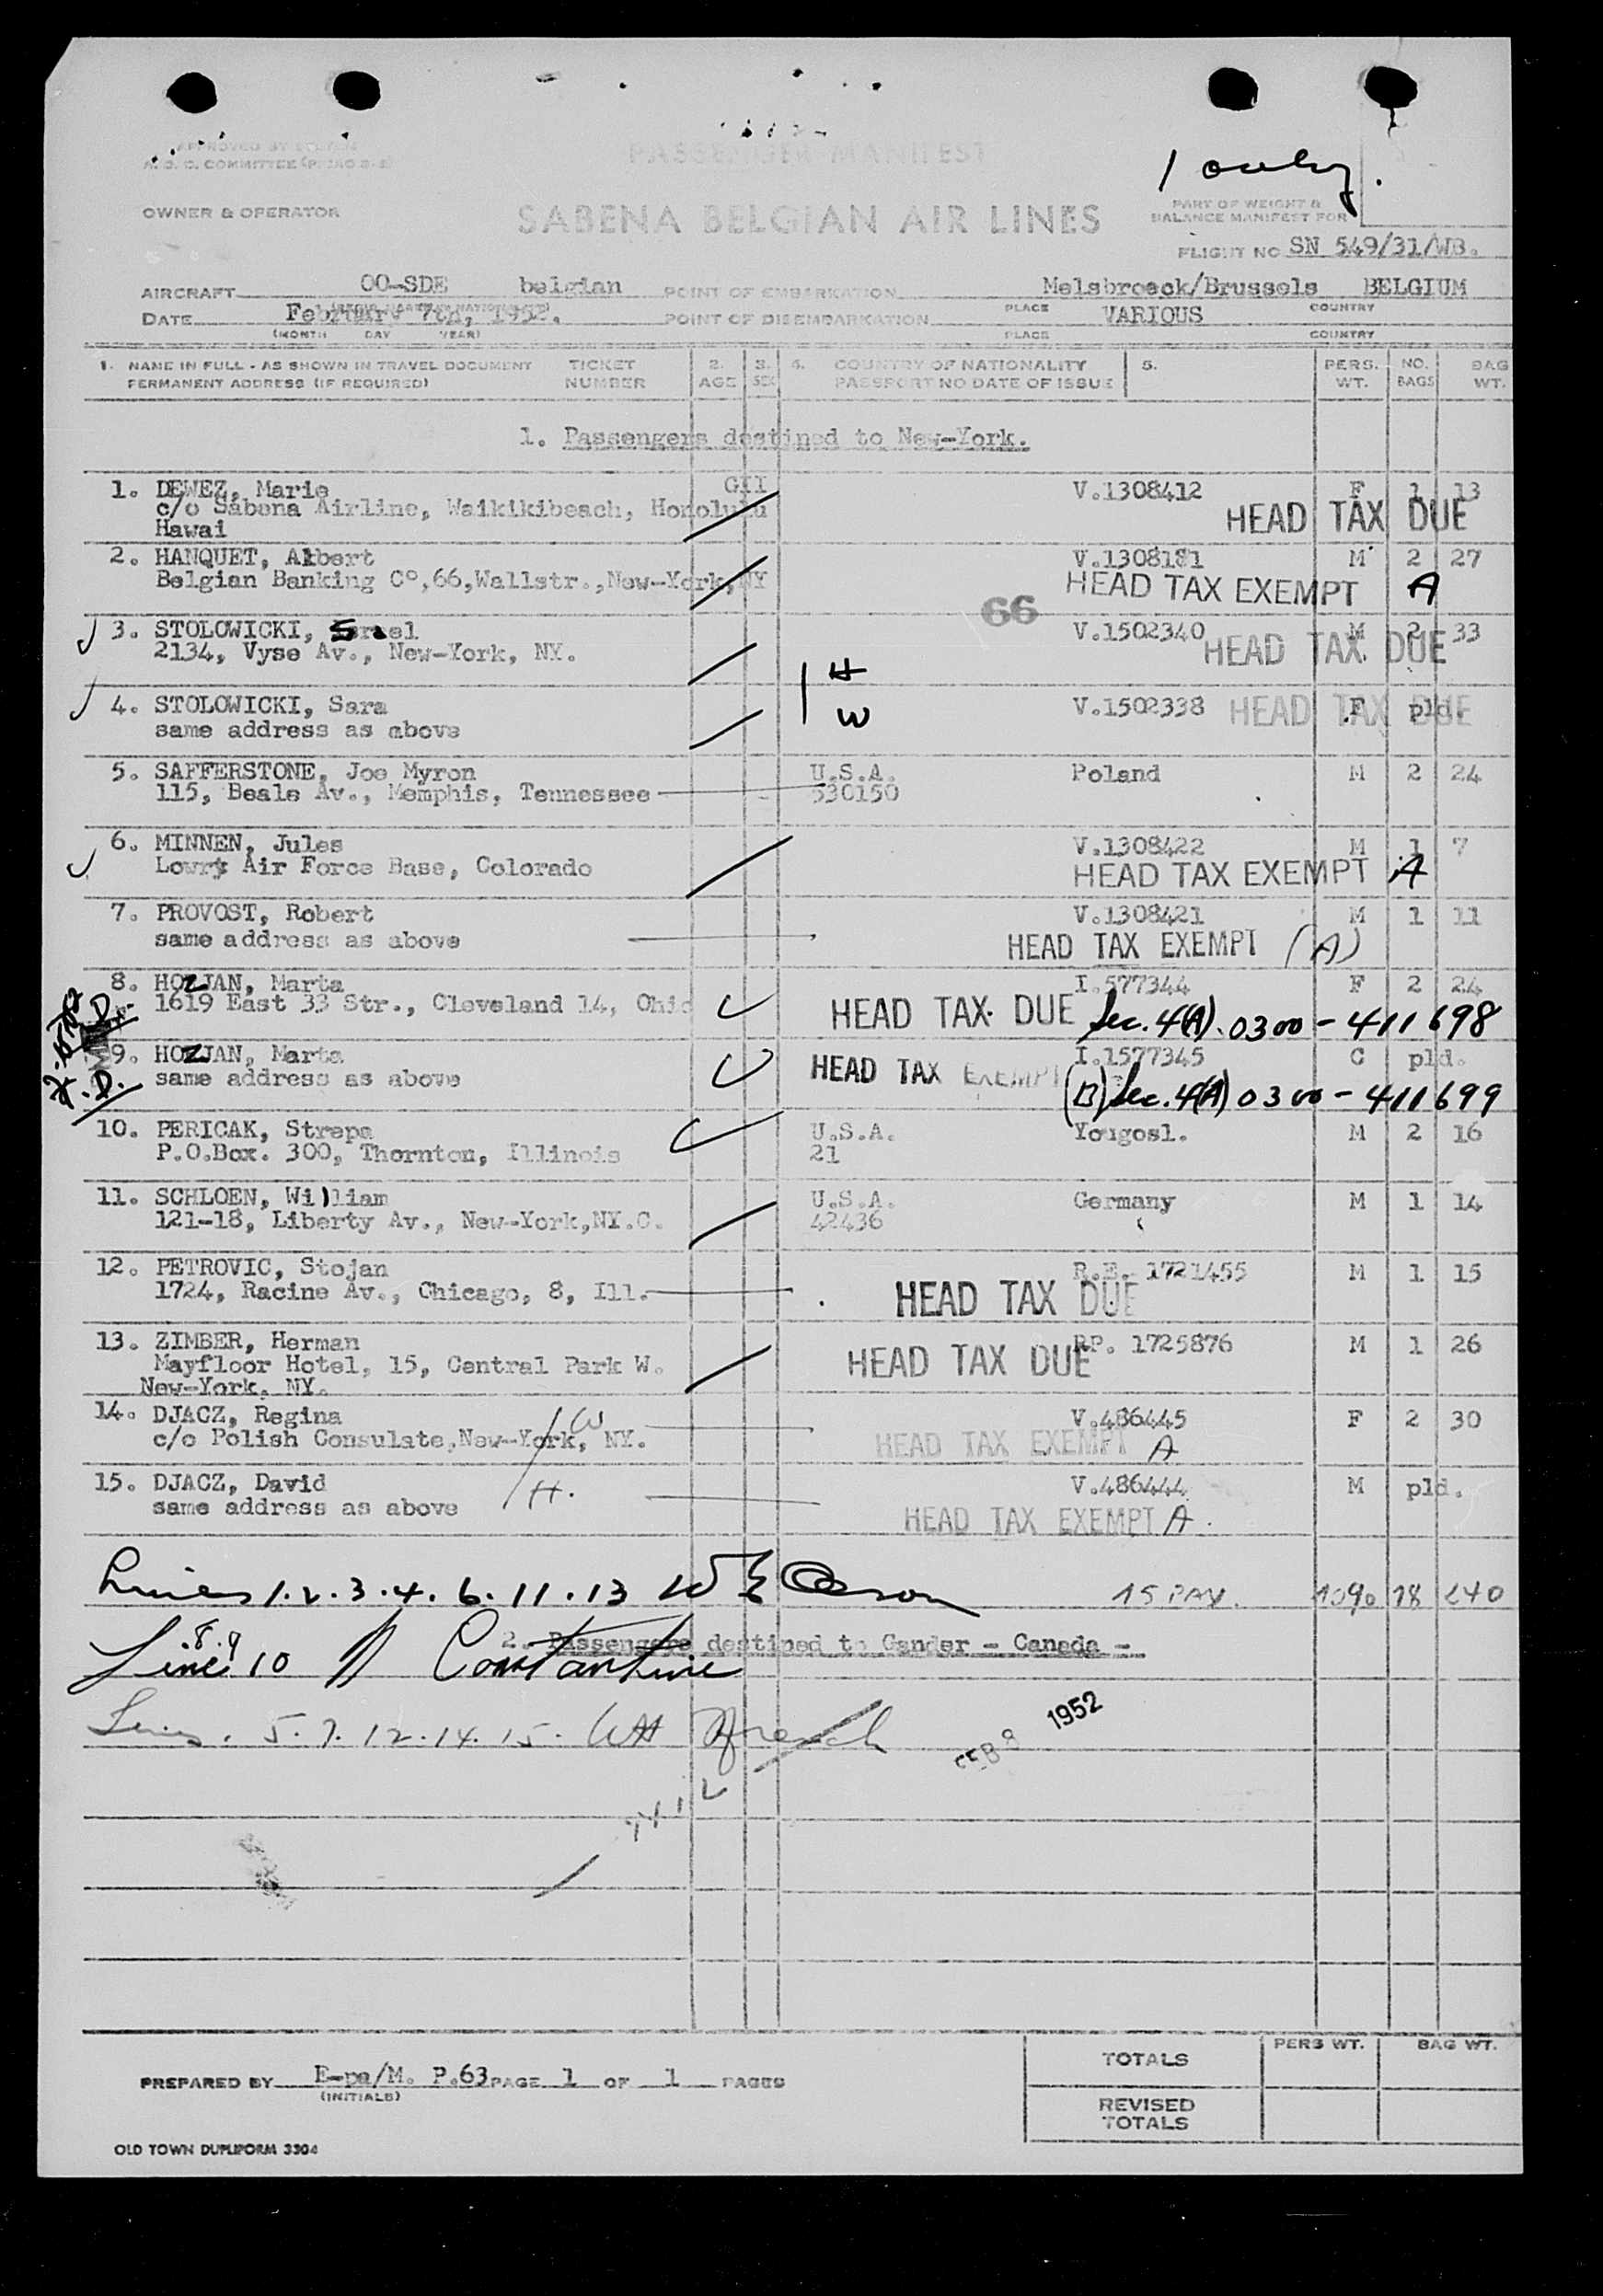 APPROVED BY
A.O.C. COMMITTEE
PASSENGER MANIFEST
1 only.
OWNER & OPERATOR
SABENA BELGIAN AIR LINES
PART OF WEIGHT &
BALANCE MANIFEST FOR
FLIGHT NO SN 549/31/WB.
AIRCRAFT OO-SDE belgian POINT OF EMBARKATION Melsbroeck/Brussels BELGIUM
PLACE COUNTRY
DATE February 7th, 1952. POINT OF DISEMBARKATION VARIOUS
(MONTH DAY YEAR) PLACE COUNTRY
1. NAME IN FULL - AS SHOWN IN TRAVEL DOCUMENT TICKET 2. 3. 4. COUNTRY OF NATIONALITY 5. PERS. NO. BAG
PERMANENT ADDRESS (IF REQUIRED) NUMBER AGE SEX PASSPORT NO DATE OF ISSUE WT. BAGS WT.
1. Passengers destined to New-York.
1. DEWEZ, Marie GII V.1308412 F 1 13
c/o Sabena Airline, Waikikibeach, Honolulu HEAD TAX DUE
Hawai
2. HANQUET, Albert V.1308181 M 2 27
Belgian Banking C°,66,Wallstr.,New-York,NY HEAD TAX EXEMPT A
66
3. STOLOWICKI, V.1502340 M 2 33
2134, Vyse Av., New-York, NY. HEAD TAX DUE
H
4. STOLOWICKI, Sara V.1502338 HEAD TAX DUE F pld.
same address as above W
5. SAFFERSTONE, Joe Myron U.S.A. Poland M 2 24
115, Beale Av., Memphis, Tennessee 530150
6. MINNEN, Jules V.1308422 M 1 7
Lowry Air Force Base, Colorado HEAD TAX EXEMPT A
7. PROVOST, Robert V.1308421 M 1 11
same address as above HEAD TAX EXEMPT (A)
8. HOZJAN, Marta I.577344 F 2 24
1619 East 33 Str., Cleveland 14, Ohio HEAD TAX DUE Sec. 4(A) 0300-411698
9. HOZJAN, Marta I.1577345 C pld.
same address as above HEAD TAX EXEMPT (B) Sec. 4(A) 0300-411699
10. PERICAK, Strepa U.S.A. Yougosl. M 2 16
P.O.Box. 300, Thornton, Illinois 21
11. SCHLOEN, William U.S.A. Germany M 1 14
121-18, Liberty Av., New-York,NY.C. 42436
12. PETROVIC, Stojan R.E. 1721455 M 1 15
1724, Racine Av., Chicago, 8, Ill. HEAD TAX DUE
13. ZIMBER, Herman RP. 1725876 M 1 26
Mayfloor Hotel, 15, Central Park W. HEAD TAX DUE
New-York, NY.
14. DJACZ, Regina W V.486445 F 2 30
c/o Polish Consulate,New-York, NY. HEAD TAX EXEMPT A
15. DJACZ, David H. V.486444 M pld.
same address as above HEAD TAX EXEMPT A.
Lines 1.2.3.4.6.11.13 15 PAX. 1090 18 240
2. Passengers destined to Gander - Canada -
Line 8.9 10 Constantine
Lines. 5.7.12.14.15.
FEB 8 1952
PERS WT. BAG WT.
TOTALS
PREPARED BY E-pa/M. P.63 PAGE 1 OF 1 PAGES
(INITIALS)
REVISED
TOTALS
OLD TOWN DUPLIFORM 3304